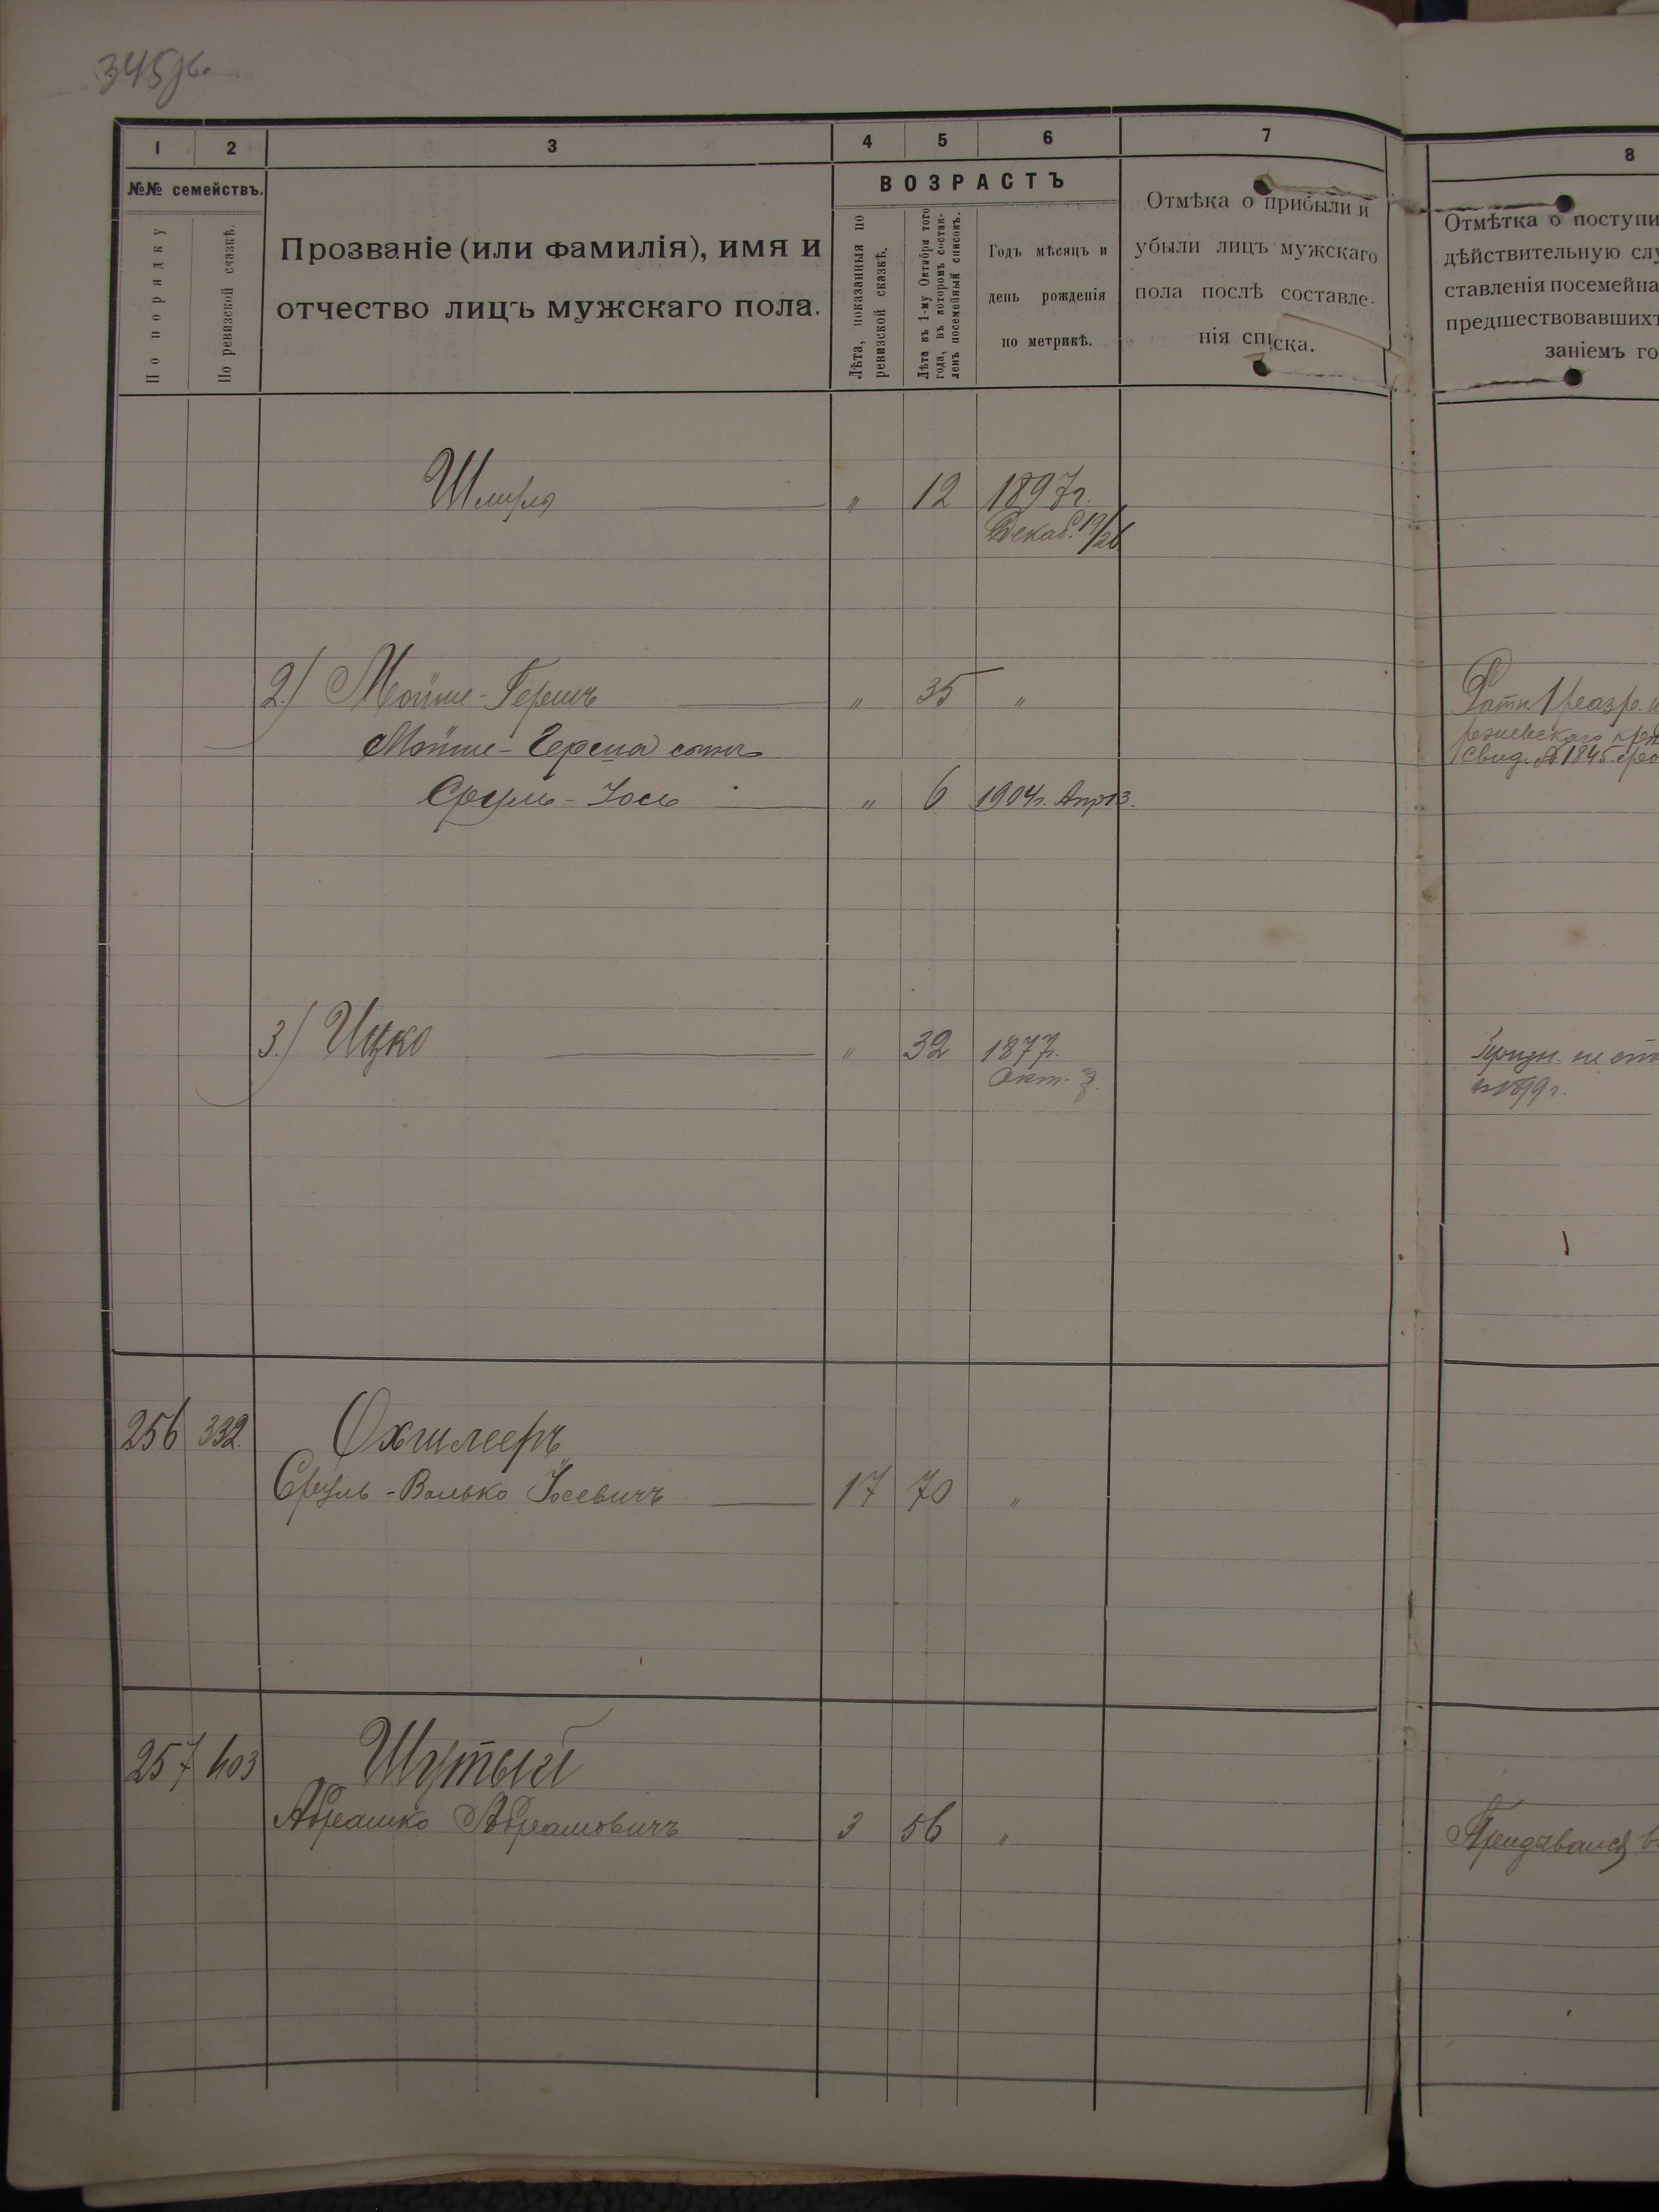 345
1 2 3 4 5 6 7 8
№№ семействъ.
По порядку
По ревизской сказкѣ.
Прозваніе (или фамилія), имя и
отчество лицъ мужскаго пола.
ВОЗРАСТЪ
Лѣта, показанныя по
ревизской сказкѣ.
Лѣта къ 1-му Октября того
года, въ которомъ состав-
ленъ посемейный списокъ.
Годъ мѣсяцъ и
день рожденія
по метрикѣ.
Отмѣка о прибыли и
убыли лицъ мужскаго
пола послѣ составле-
нія списка.
Отмѣтка о поступи
дѣйствительную слу
ставленія посемейна
предшествовавшихъ
заніемъ го
Шмуля " 12 1897г.
Декаб. 19/26
2) Мойше-Гершъ " 35 "
Ратн. 1 разр.
Мойше-Герша сынъ
Свид. № 1845.
Сруль-Іось " 6 1904г. Апр. 13.
3) Ицко " 32 1877г.
Окт. 3.
1899г.
256 332 Охшлееръ
Сруль-Волько Іосевичъ 17 70 "
257 403 Шутый
Абрашко Абрамовичъ 3 56 "